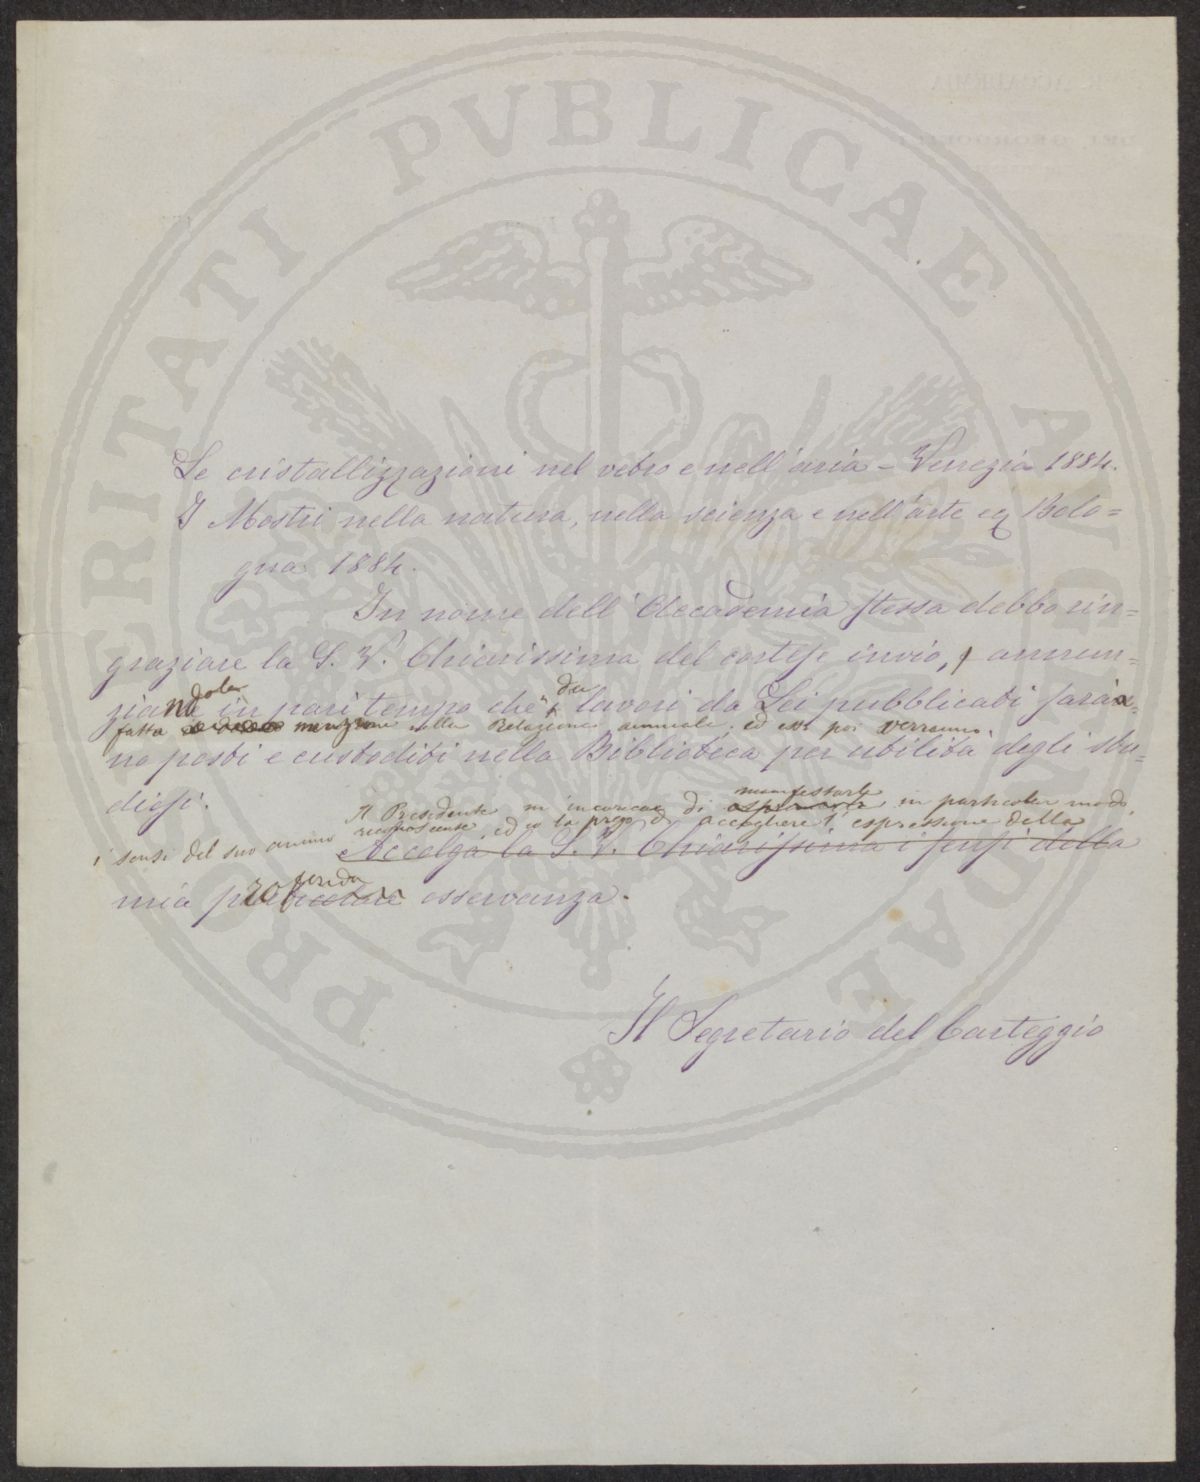 PROSPERITATI PVBLICAE AVGENDAE
Le cristallizzazioni nel vetro e nell'aria - Venezia 1884.
I Mostri nella natura, nella scienza e nell'arte Bolo=
gna 1884.
In nome dell'Accademia stessa debbo rin=
graziare la S. V. Chiarissima del cortese invio, annun=
ziandole in pari tempo che de' lavori da Lei pubblicati sarà
fatta menzione nella Relazione annuale, ed essi poi verranno
no posti e custoditi nella Biblioteca per utilità degli stu=
diosi.
manifestarle
Il Presidente m'incarica di esprimerle in particolar modo
i sensi del suo animo riconoscente, ed io la prego di accogliere l'espressione della
Accolga la S. V. Chiarissima i sensi della
mia profonda osservanza.
Il Segretario del Carteggio